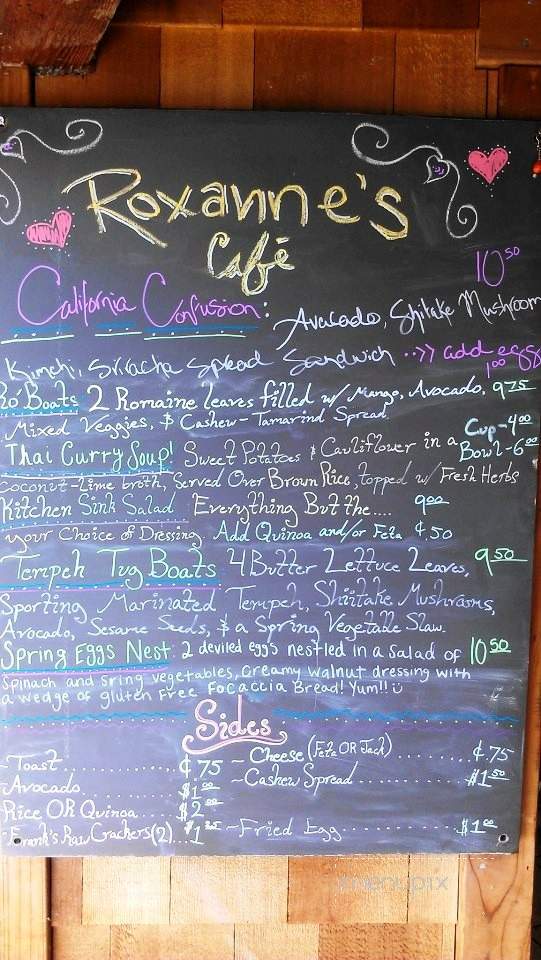 Roxanne's
Café
10.50
California Confusion: Avocado, Shitake Mushroom
Kimchi, Sriracha Spread Sandwich ..>> add egg 1.00
Ro' Boats 2 Romaine leaves filled w/ Mango, Avocado, 9.75
Mixed Veggies, & Cashew-Tamarind Spread.
Thai Curry Soup! Sweet Potatoes & Cauliflower in a Cup-4.00
Coconut-lime broth, Served Over Brown Rice, topped w/ Fresh Herbs Bowl-6.00
Kitchen Sink Salad Everything But the.... 9.00
your Choice of Dressing Add Quinoa and/or Feta ¢.50
Tempeh Tug Boats 4 Butter Lettuce Leaves, 9.50
Sporting Marinated Tempeh, Shiitake Mushrooms,
Avocado, Sesame Seeds, & a Spring Vegetable Slaw.
Spring Eggs Nest: 2 deviled eggs nestled in a salad of 10.50
Spinach and sring vegetables, Creamy walnut dressing with
a wedge of gluten Free Focaccia Bread! Yum!!
Sides
-Toast ........ ¢.75 ~Cheese (Feta OR Jack) ........ ¢.75
-Avocado ........ $1.00 ~Cashew Spread ........ $1.50
Rice OR Quinoa ... $2.00
-Frank's Raw Crackers (2)... $1.25 ~Fried Egg ........ $1.00
menupix